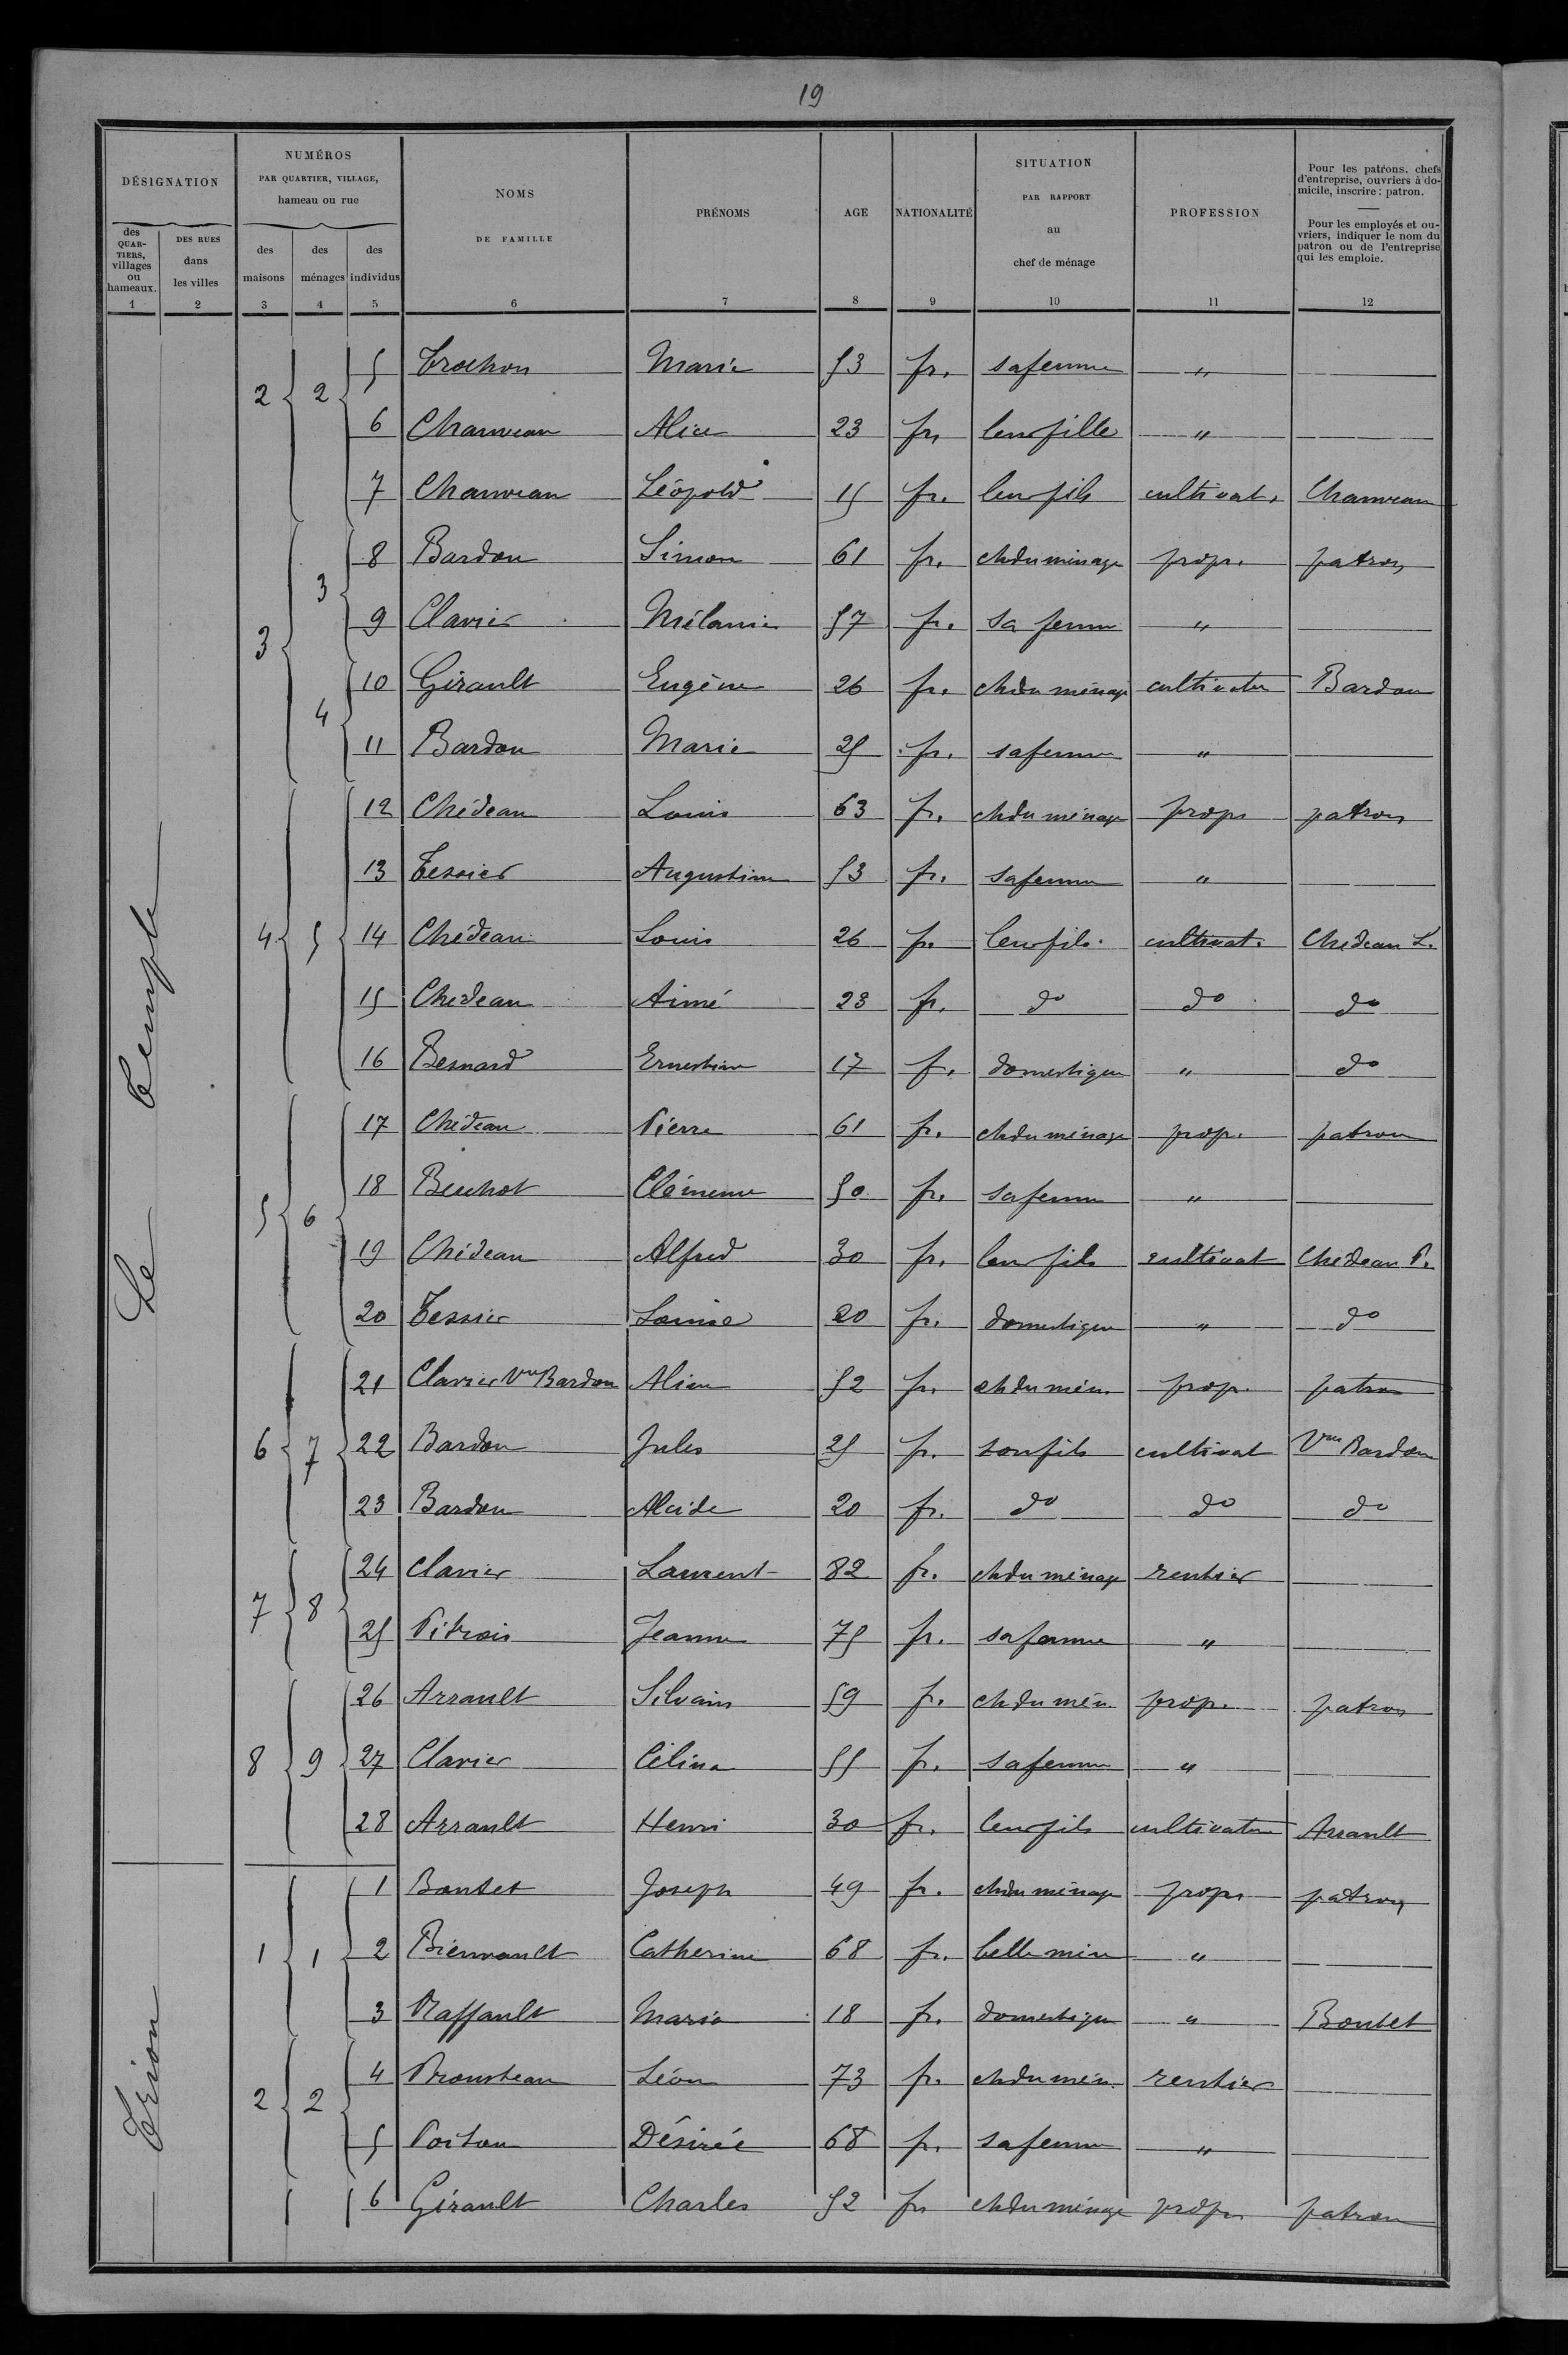 19
DÉSIGNATION
NUMÉROS
PAR QUARTIER, VILLAGE,
hameau ou rue
NOMS
DE FAMILLE
PRÉNOMS
AGE
NATIONALITÉ
SITUATION
PAR RAPPORT
au
chef de ménage
PROFESSION
Pour les patrons, chefs
d'entreprise, ouvriers à do-
micile, inscrire : patron.
Pour les employés et ou-
vriers, indiquer le nom du
patron ou de l'entreprise
qui les emploie.
des
QUAR-
TIERS,
villages
ou
hameaux.
DES RUES
dans
les villes
des
maisons
des
ménages
des
individus
1 2 3 4 5 6 7 8 9 10 11 12
Le Temple
2 2 5 Trochon Marie 53 fr. sa femme "
6 Chauveau Alice 23 fr. leur fille "
7 Chauveau Léopold 15 fr. leur fils cultivat. Chauveau
3 3 8 Bardon Simon 61 fr. ch du ménage propr. patron
9 Clavier Mélanie 57 fr. sa femme "
4 10 Girault Eugène 26 fr. ch du ménage cultivateur Bardon
11 Bardon Marie 25 fr. sa femme "
12 Chédeau Louis 63 fr. ch du ménage propr patron
13 Tessier Augustine 53 fr. sa femme "
4 5 14 Chédeau Louis 26 fr. leur fils cultivat. Chédeau L.
15 Chédeau Aimé 23 fr. do do do
16 Besnard Ernestine 17 fr. domestique " do
17 Chédeau Pierre 61 fr. ch du ménage prop. patron
5 6 18 Beuchot Clémence 50 fr. sa femme "
19 Chédeau Alfred 30 fr. leur fils cultivat Chédeau P.
20 Tessier Louise 20 fr. domestique " do
21 Clavier Vve Bardon 52 fr. ch du mén. prop. patron
6 7 22 Bardon Jules 25 fr. son fils cultivat Vve Bardon
23 Bardon Alcide 20 fr. do do do
7 8 24 Clavier Laurent 82 fr. ch du ménage rentier
25 Pitrois Jeanne 75 fr. sa femme "
26 Arrault Silvain 59 fr. ch du mén prop. patron
8 9 27 Clavier Célina 55 fr. sa femme "
28 Arrault Henri 30 fr. leur fils cultivateur Arrault
Trion
1 Boutet Joseph 49 fr. ch du ménage propr patron
1 1 2 Bienvault Catherine 68 fr. belle mère "
3 Raffault Maria 18 fr. domestique " Boutet
2 2 4 Prousteau Léon 73 fr. ch du mén. rentier
5 Poitou Désirée 68 fr. sa femme "
6 Girault Charles 52 fr ch du ménage propr patron